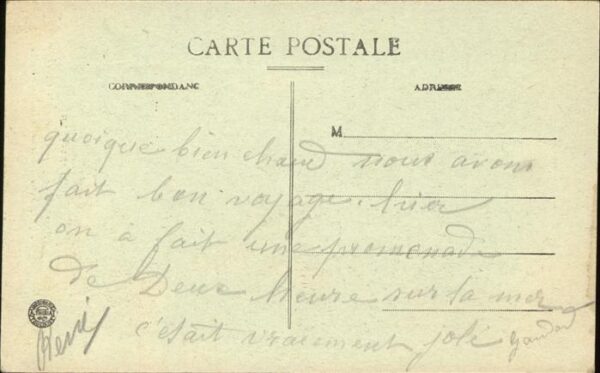 CARTE POSTALE
CORRESPONDANCE
ADRESSE
M
quoique bien chaud nous avons
fait bon voyage. hier
on à fait une promenade
de Deux heure sur la mer
c'était vraiment joli